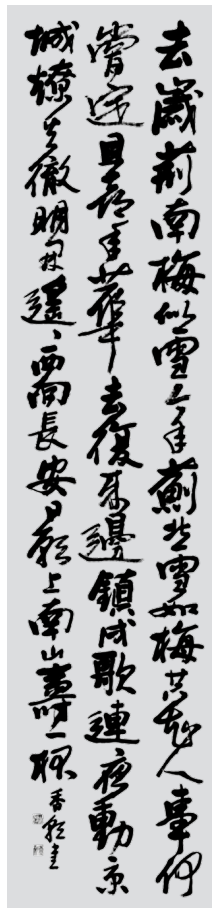 去歲荊南梅似雪今年薊北雪如梅共知人事何
嘗定且喜年華去復來邊鎮戍歌連夜動京
城燎火徹明開遙〻西向長安日願上南山壽一杯